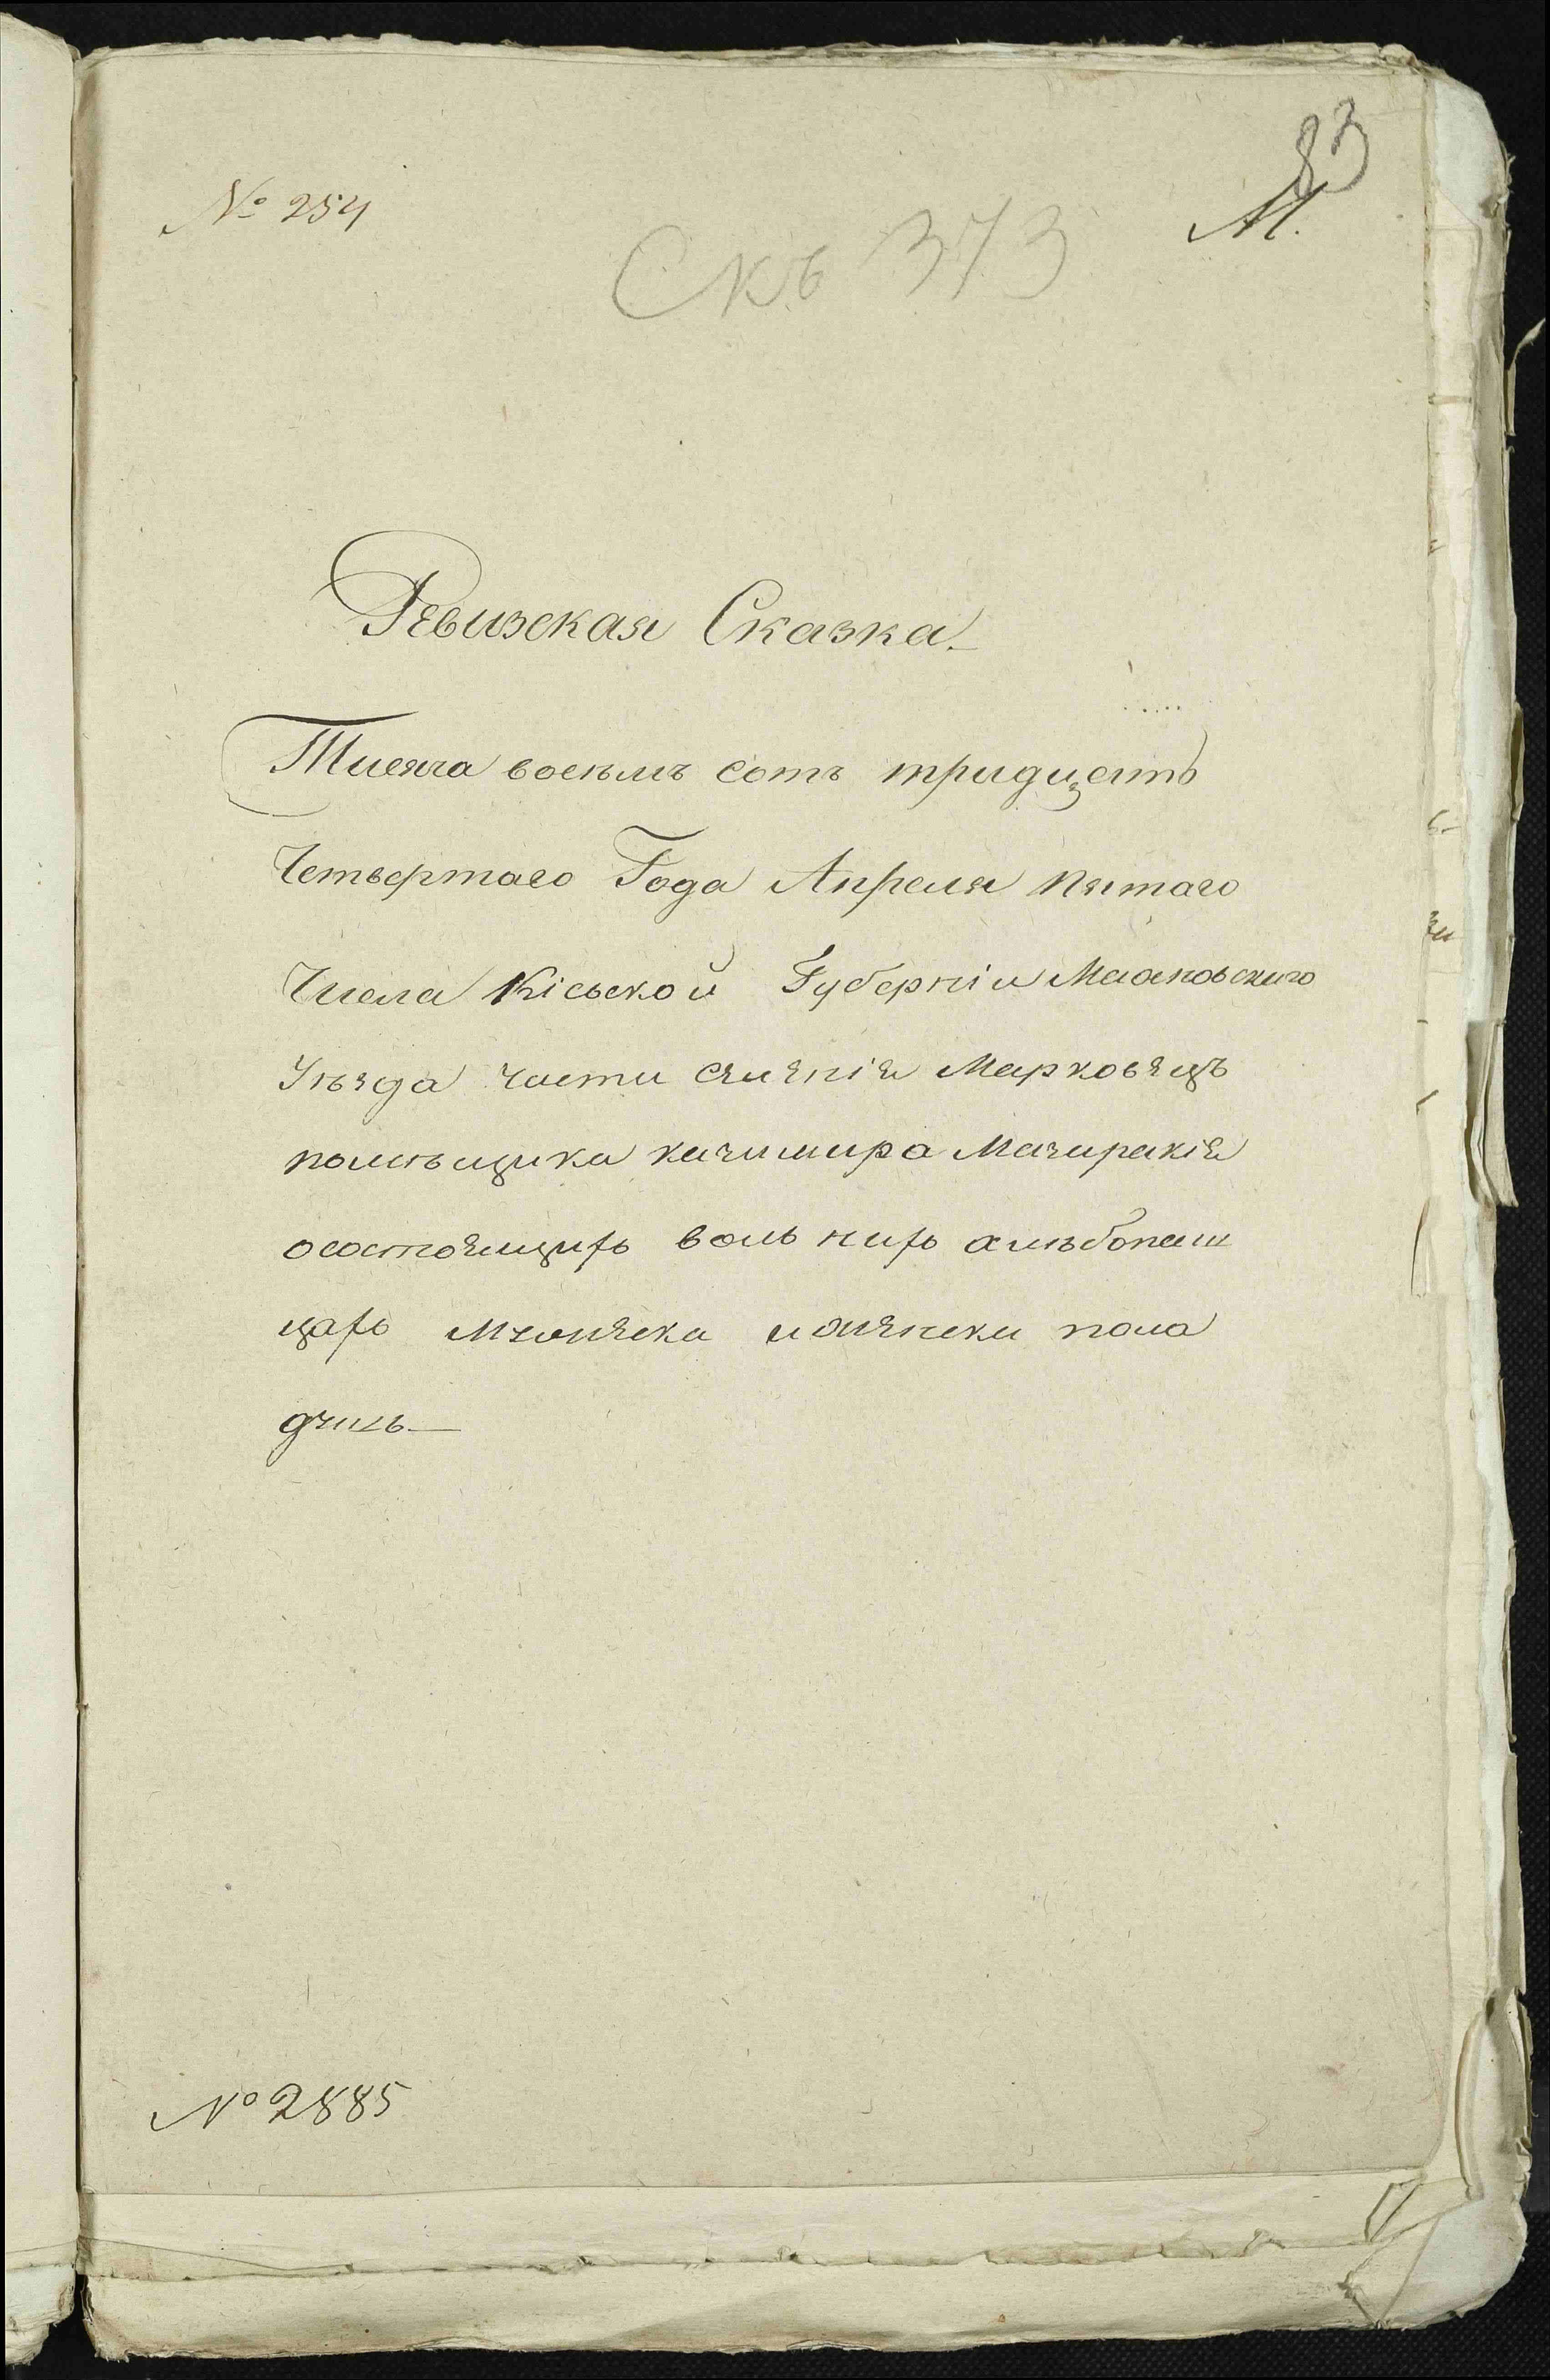 83
№ 254
М.
Скв 373
Ревизская Сказка
Тисяча восѣмъ сотъ тридцять
Четвертаго Года Апреля пятаго
Числа Кіевской Губерніи Махновского
Уѣзда части селенія Марковецъ
помѣщика казимира Мазиракія
осостоящихъ вольнихъ хлѣбопаш
цахъ мужеска иженска пола
душъ
№ 2885